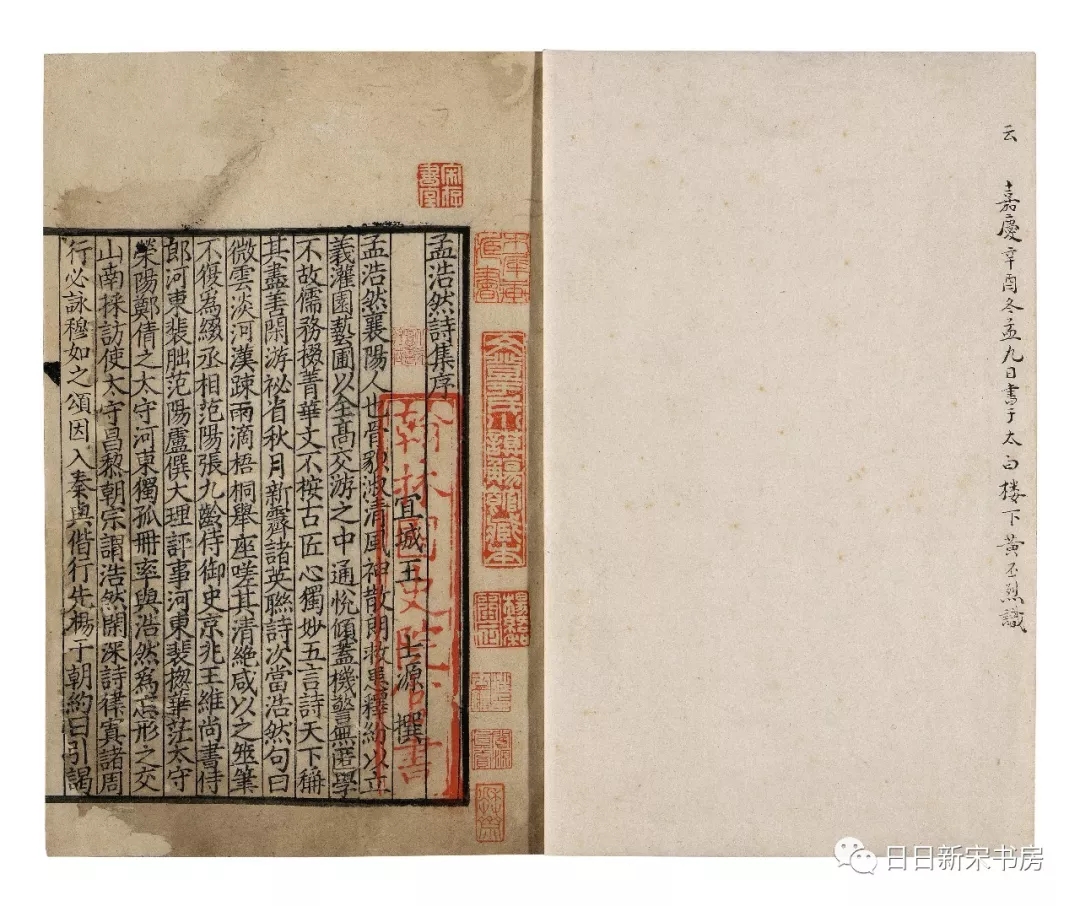 云 嘉慶辛酉冬孟九日書于太白楼下黄丕烈識
宋存書室
文登于氏小謨觴館藏本
孟浩然詩集序
宜城王士源撰
翰林國史院官書
孟浩然襄陽人也骨貌淑清風神散朗救患釋紛以立
義灌園藝圃以全髙交游之中通悅傾蓋機警無匿學
不故儒務掇菁華文不桉古匠心獨妙五言詩天下稱
其盡善閑游祕省秋月新霽諸英聯詩次當浩然句曰
微雲淡河漢疎雨滴梧桐舉座嗟其清絶咸以之筆
不復為綴丞相范陽張九齡侍御史京兆王維尚書侍
郎河東裴朏范陽盧僎大理評事河東裴揔華茫太守
滎陽鄭倩之太守河東獨孤冊率與浩然為忘形之交
山南採訪使太守昌黎朝宗謂浩然閑深詩律寘諸周
行必詠穆如之頌因入秦與偕行先楊于朝約日引謁
日日新宋书房